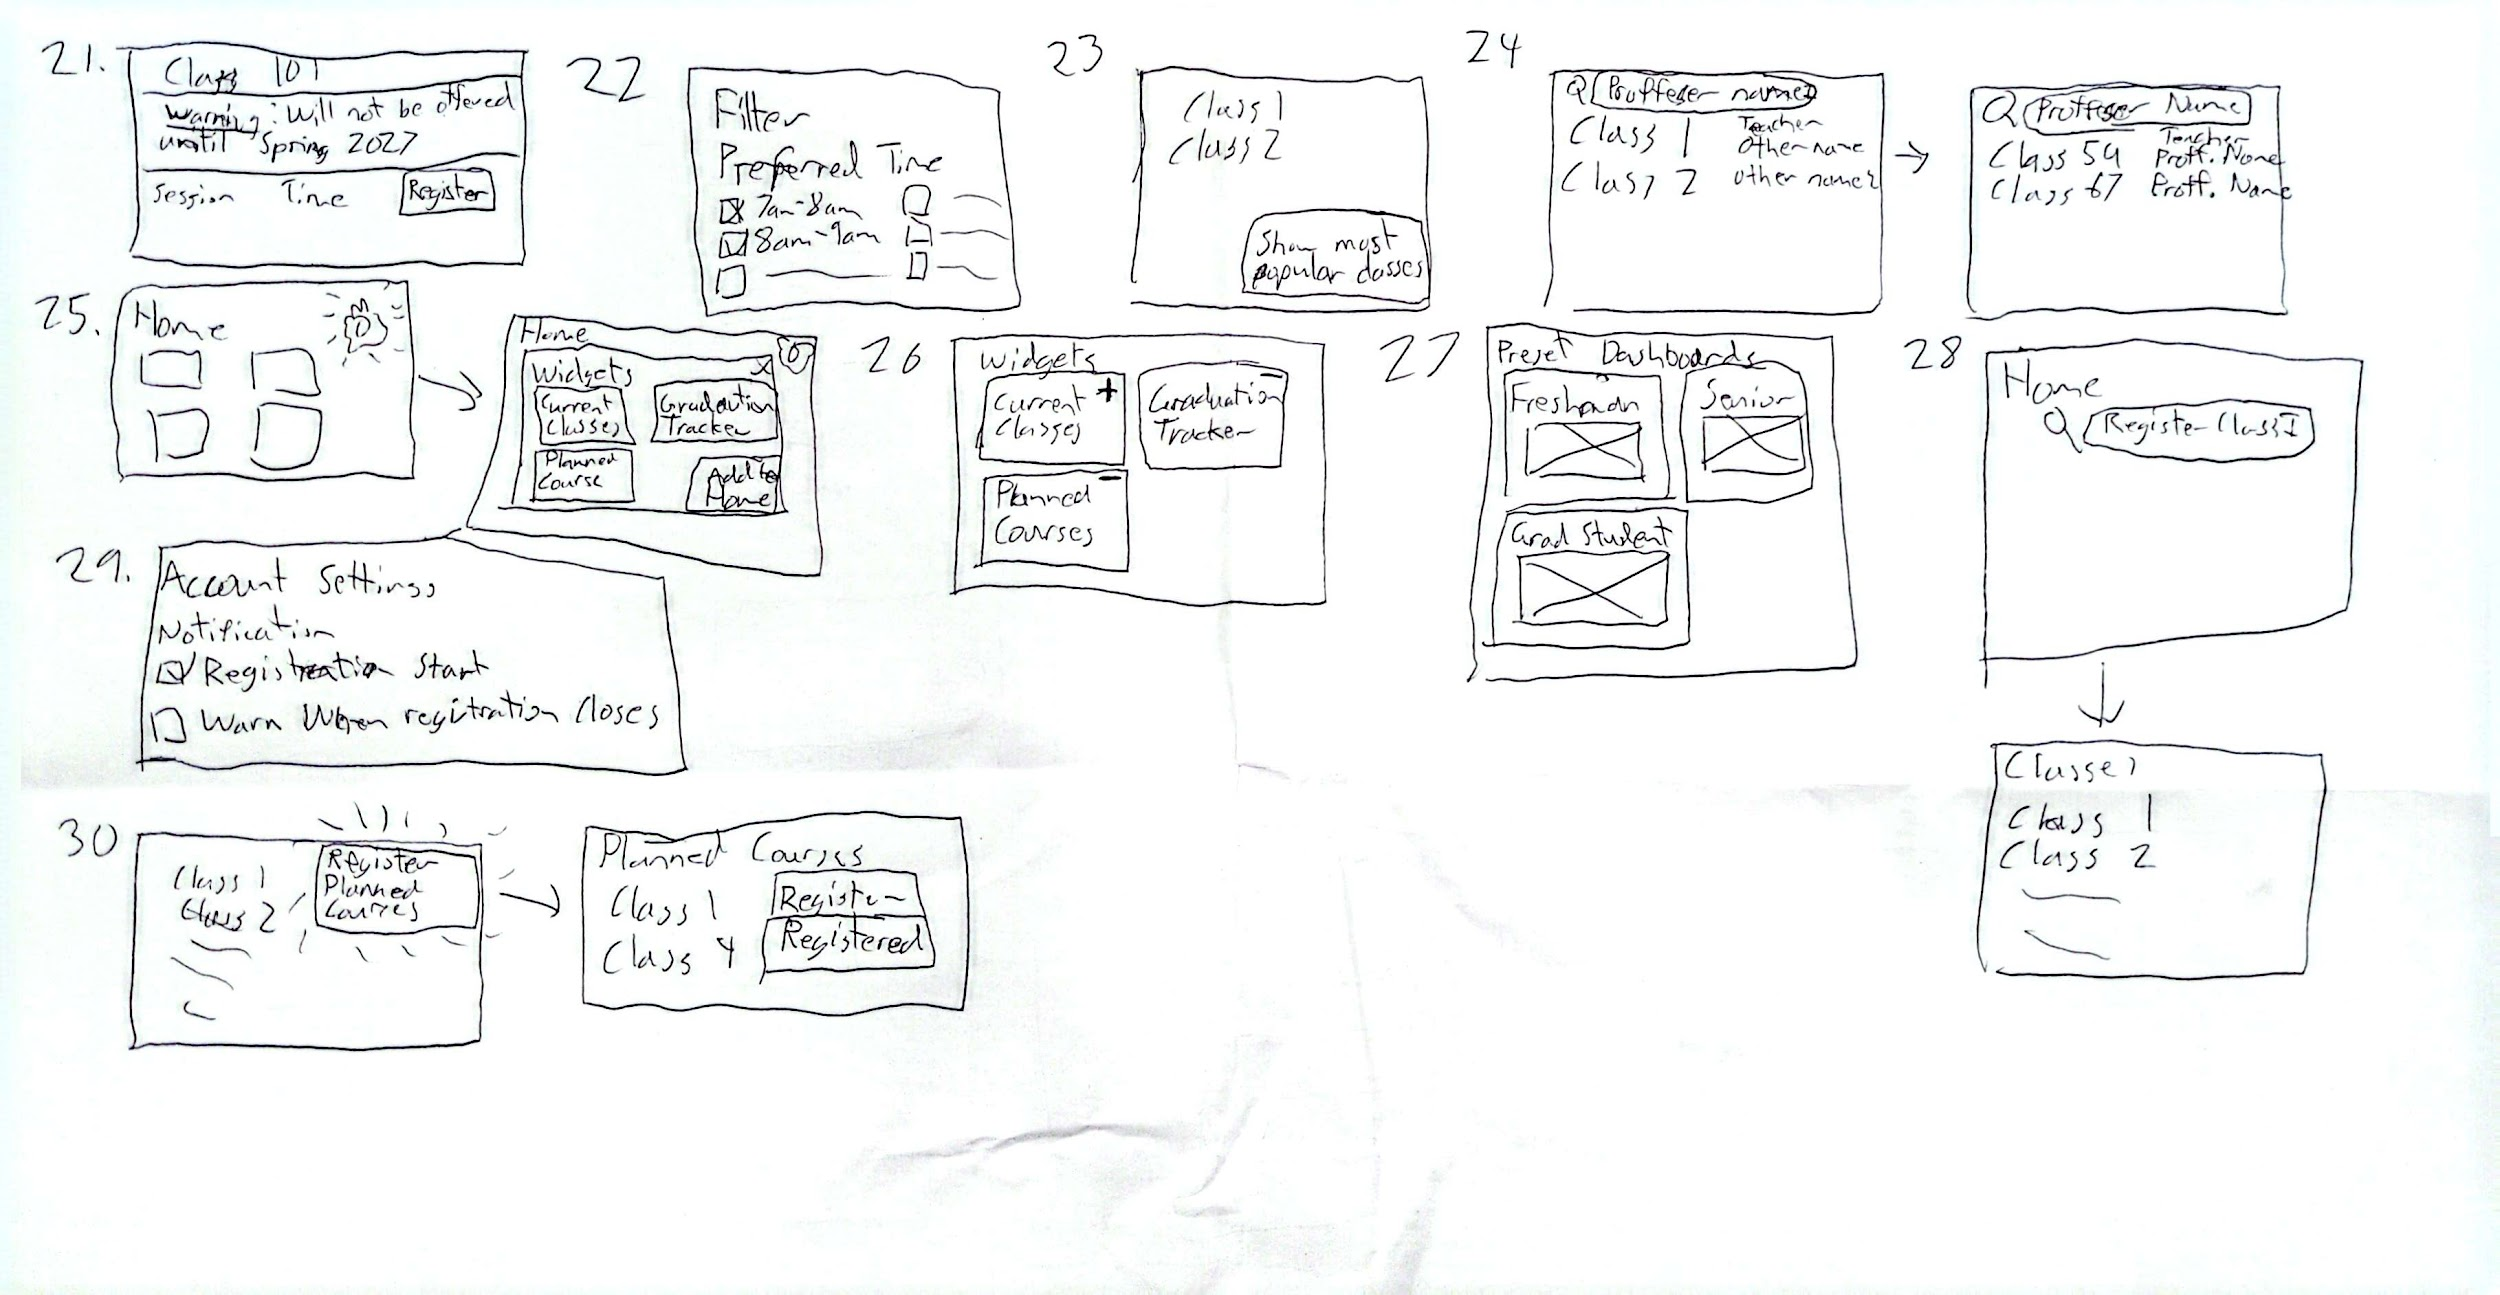 21.
Class 101
Warning: Will not be offered
until Spring 2027
Session Time Register
22
Filter
Preferred Time
7am-8am
8am-9am
23
Class 1
Class 2
Show most
popular classes
24
Q Proffeser name
Class 1 Teacher
Other name
Class 2 other name 2
Q Proffeser Name
Teacher
Class 54 Proff. Name
Class 67 Proff. Name
25.
Home
Home
Widgets X
Current
Classes
Graduation
Tracker
Planned
Course
Add to
Home
26
Widgets
Current +
Classes
Graduation -
Tracker
Planned -
Courses
27
Preset Dashboards
Freshman
Senior
Grad Student
28
Home
Register Class
Classes
Class 1
Class 2
29.
Account Settings
Notification
Registration Start
Warn When regitration Closes
30
Class 1
Class 2
Register
Planned
Courses
Planned Courses
Class 1 Register
Class 4 Registered